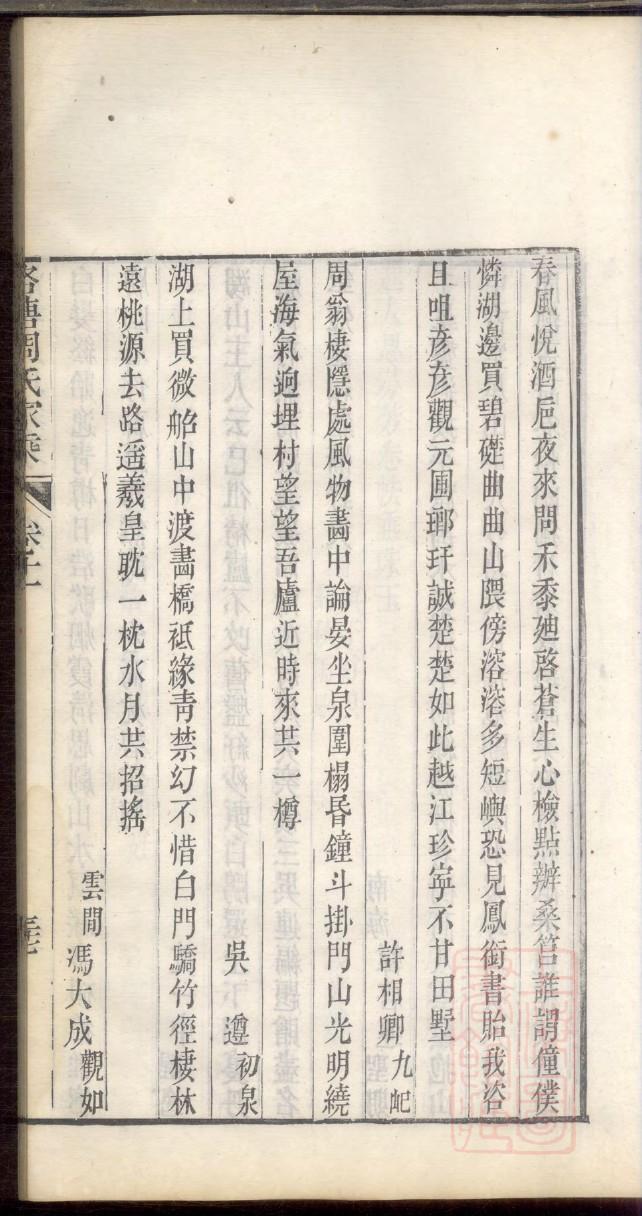 春風悅酒巵夜來問禾黍廸啓蒼生心檢點辦桑筥誰謂僮僕
憐湖邊買碧礎曲曲山隈傍溶溶多短嶼恐見鳳銜書貽我咨
且咀彥彥觀元圃瑯玕誠楚楚如此越江珍寧不甘田墅
許相卿九𣏌
周翁棲隱處風物畵中論晏坐泉圍榻昬鐘斗掛門山光明繞
屋海氣逈埋村望望吾廬近時來共一樽
吳遵初泉
湖上買微舩山中渡畵橋祗緣靑禁幻不惜白門驕竹徑棲林
遠桃源去路遥羲皇耽一枕水月共招搖
雲間馮大成觀如
洛塘周氏家乘 卷十二